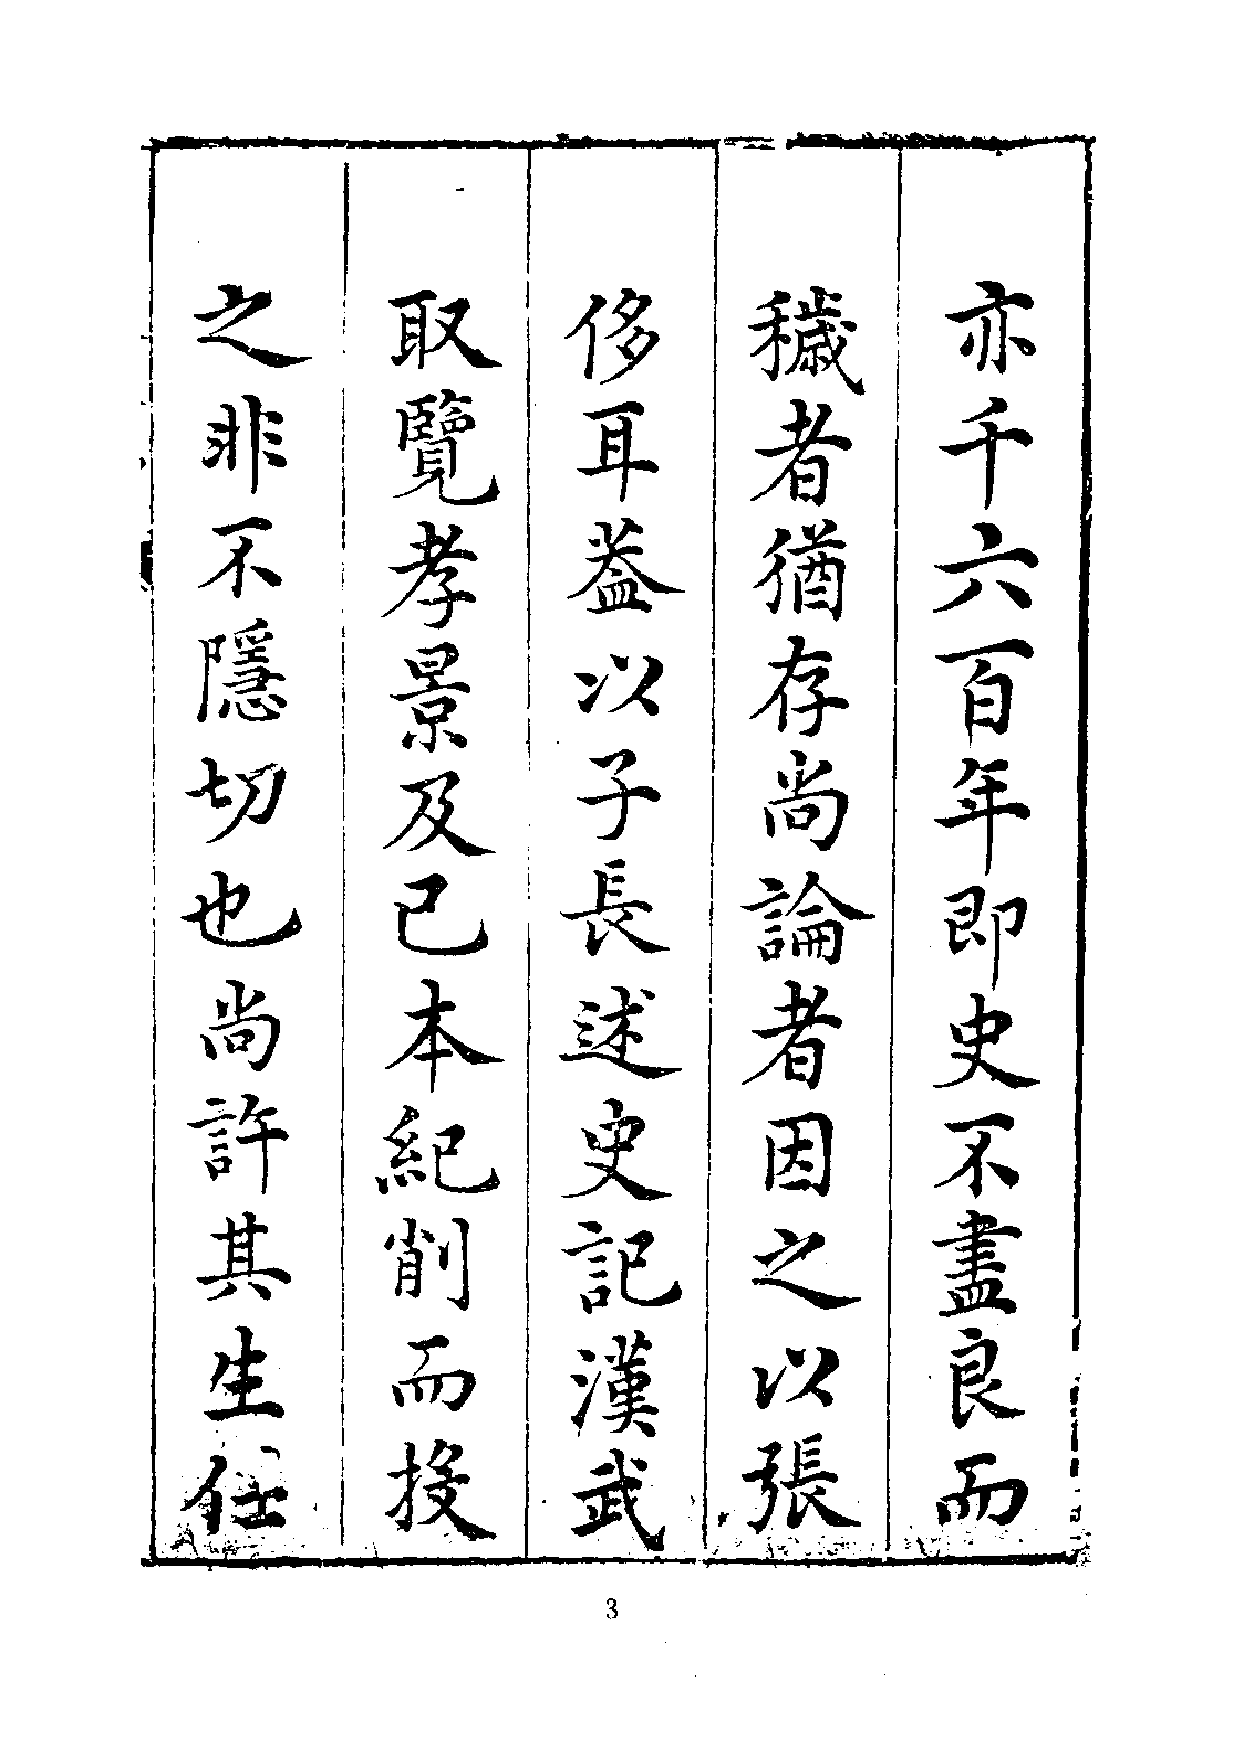 亦千六百年即史不盡良而
穢者猶存尚論者因之以張
侈耳葢以子長述史記漢武
取覽孝景及己本紀削而投
之非不隱切也尚許其生任
3